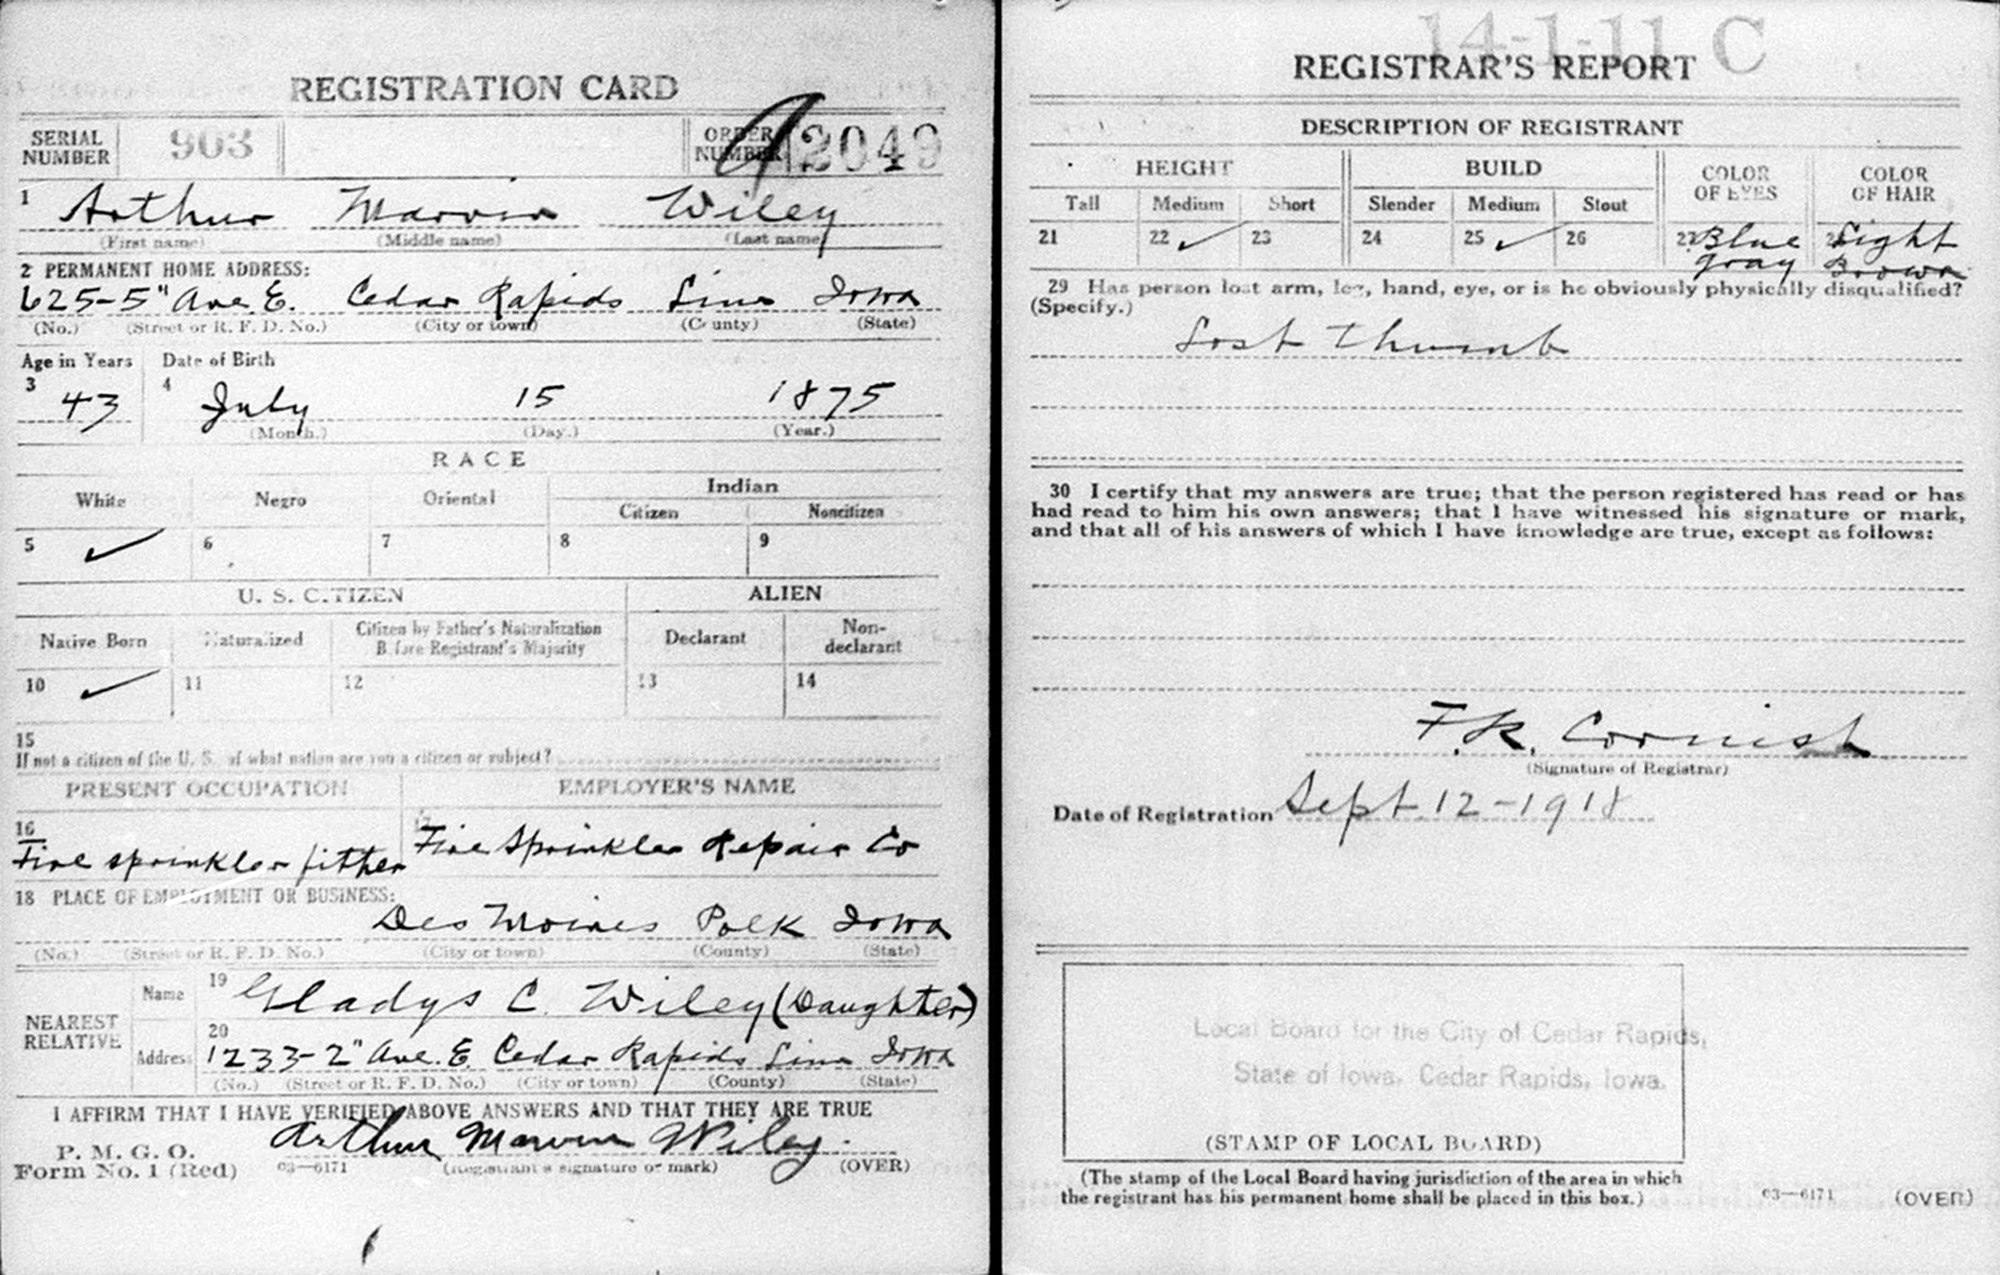 REGISTRATION CARD
SERIAL NUMBER 903 ORDER NUMBER A 2049
1 Arthur Marvin Wiley
(First name) (Middle name) (Last name)
2 PERMANENT HOME ADDRESS:
625-5" Ave. E. Cedar Rapids Linn Iowa
(No.) (Street or R. F. D. No.) (City or town) (County) (State)
Age in Years Date of Birth
3 43 4 July 15 1875
(Month.) (Day.) (Year.)
RACE
White Negro Oriental Indian
Citizen Noncitizen
5 ✓ 6 7 8 9
U. S. CITIZEN ALIEN
Native Born Naturalized Citizen by Father's Naturalization Before Registrant's Majority Declarant Non-declarant
10 ✓ 11 12 13 14
15
If not a citizen of the U. S. of what nation are you a citizen or subject?
PRESENT OCCUPATION EMPLOYER'S NAME
16 17
Fire sprinkler fitter Fire Sprinkler Repair Co
18 PLACE OF EMPLOYMENT OR BUSINESS:
Des Moines Polk Iowa
(No.) (Street or R. F. D. No.) (City or town) (County) (State)
NEAREST RELATIVE
Name 19 Gladys C. Wiley (Daughter)
Address 20 1233-2" Ave. E. Cedar Rapids Linn Iowa
(No.) (Street or R. F. D. No.) (City or town) (County) (State)
I AFFIRM THAT I HAVE VERIFIED ABOVE ANSWERS AND THAT THEY ARE TRUE
P. M. G. O.
Form No. 1 (Red) 03—6171 Arthur Marvin Wiley.
(Registrant's signature or mark) (OVER)
14-1-11 C
REGISTRAR'S REPORT
DESCRIPTION OF REGISTRANT
HEIGHT BUILD COLOR OF EYES COLOR OF HAIR
Tall Medium Short Slender Medium Stout
21 22 ✓ 23 24 25 ✓ 26 27 Blue gray 28 Light Brown
29 Has person lost arm, leg, hand, eye, or is he obviously physically disqualified?
(Specify.)
Lost thumb
30 I certify that my answers are true; that the person registered has read or has
had read to him his own answers; that I have witnessed his signature or mark,
and that all of his answers of which I have knowledge are true, except as follows:
F.K. Cornish
(Signature of Registrar)
Date of Registration Sept. 12-1918
Local Board for the City of Cedar Rapids,
State of Iowa. Cedar Rapids, Iowa.
(STAMP OF LOCAL BOARD)
(The stamp of the Local Board having jurisdiction of the area in which
the registrant has his permanent home shall be placed in this box.)
03—6171 (OVER)